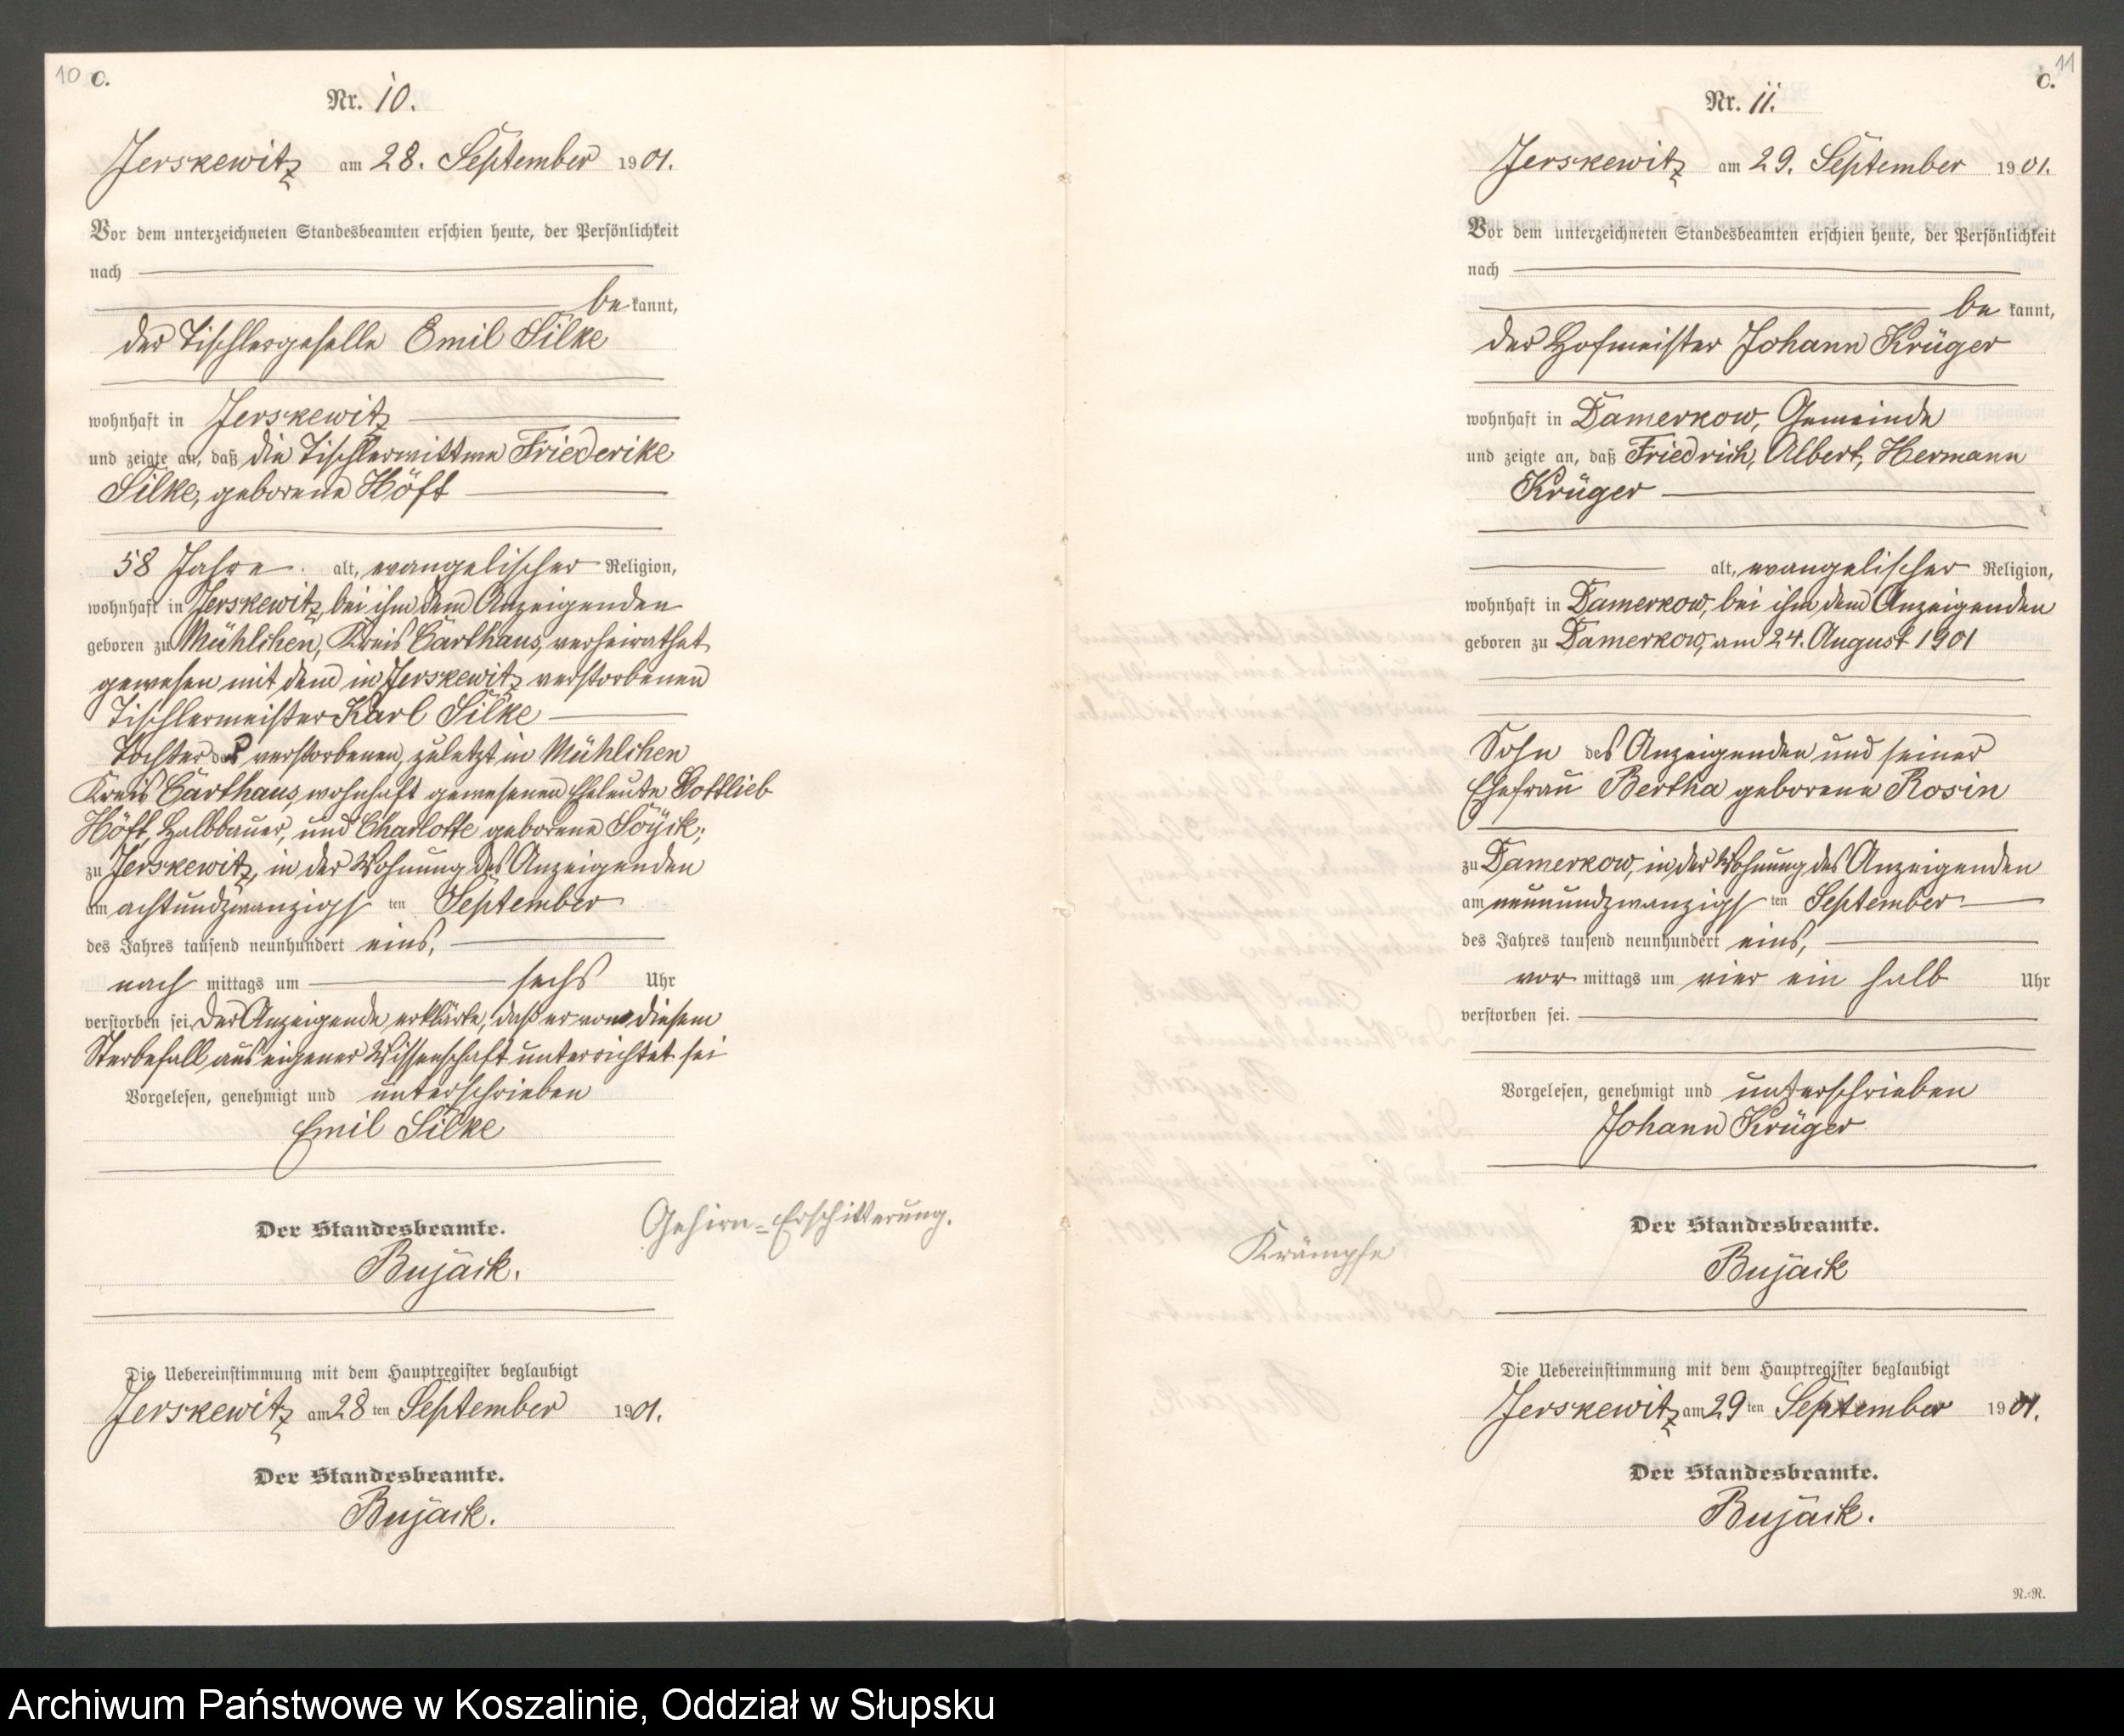 10 C.
Nr. 10.
Jerskewitz am 28. September 1901.
Vor dem unterzeichneten Standesbeamten erschien heute, der Persönlichkeit
nach
be kannt,
der Tischlergeselle Emil Silke
wohnhaft in Jerskewitz
und zeigte an, daß die Tischlerwittwe Friederike
Silke, geborene Höft
58 Jahre alt, evangelischer Religion,
wohnhaft in Jerskewitz, bei ihm dem Anzeigenden
geboren zu Mühlchen, Kreis Carthaus, verheirathet
gewesen mit dem in Jerskewitz verstorbenen
Tischlermeister Karl Silke
Tochter der verstorbenen, zuletzt in Mühlchen
Kreis Carthaus wohnhaft gewesenen Eheleute Gottlieb
Höft, Halbbauer, und Charlotte geborene
zu Jerskewitz, in der Wohnung des Anzeigenden
am achtundzwanzigs ten September
des Jahres tausend neunhundert eins,
nach mittags um sechs Uhr
verstorben sei. Der Anzeigende erklärte, daß er von diesem
Sterbefall aus eigener Wissenschaft unterrichtet sei
Vorgelesen, genehmigt und unterschrieben
Emil Silke
Der Standesbeamte.
Bujack.
Gehirn-Erschitterung.
Die Uebereinstimmung mit dem Hauptregister beglaubigt
Jerskewitz am 28 ten September 1901.
Der Standesbeamte.
Bujack.
C. 11
Nr. 11.
Jerskewitz am 29. September 1901.
Vor dem unterzeichneten Standesbeamten erschien heute, der Persönlichkeit
nach
be kannt,
der Hofmeister Johann Krüger
wohnhaft in Damerkow, Gemeinde
und zeigte an, daß Friedrich, Albert, Hermann
Krüger
alt, evangelischer Religion,
wohnhaft in Damerkow, bei ihm dem Anzeigenden
geboren zu Damerkow, am 24. August 1901
Sohn des Anzeigenden und seiner
Ehefrau Bertha geborene Rosin
zu Damerkow, in der Wohnung des Anzeigenden
am neunundzwanzigs ten September
des Jahres tausend neunhundert eins,
vor mittags um vier ein halb Uhr
verstorben sei.
Vorgelesen, genehmigt und unterschrieben
Johann Krüger
Der Standesbeamte.
Krämpfe
Bujack
Die Uebereinstimmung mit dem Hauptregister beglaubigt
Jerskewitz am 29 ten September 1901.
Der Standesbeamte.
Bujack.
N.-N.
Archiwum Państwowe w Koszalinie, Oddział w Słupsku